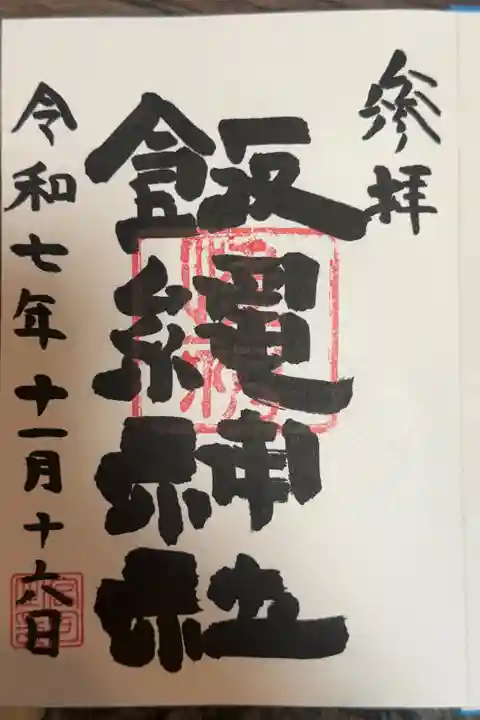 參拝
飯縄神社
令和七年十一月十六日